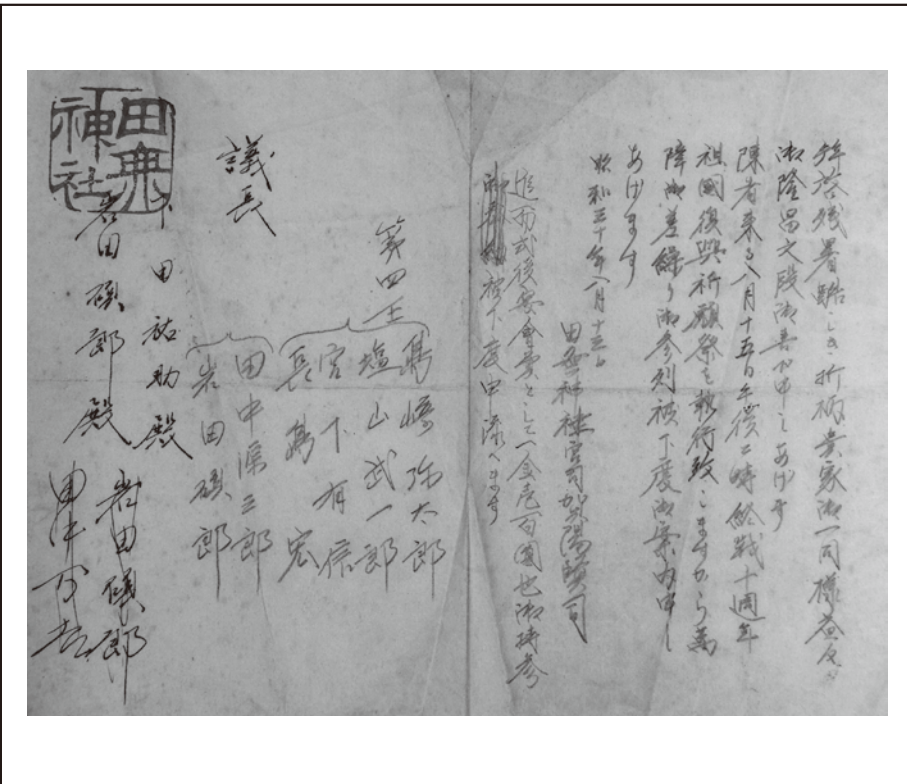 拝啓残暑酷しき折柄貴家御一同様益々
御隆昌之段御喜び申しあげます
陳者来る八月十五日午后二時終戦十週年
祖国復興祈願祭を執行致しますから萬
障御差繰り御参列被下度御案内申し
あげます
昭和三十年八月十三日
田無神社宮司賀陽賢司
追而式後宴会費として一金壱百円也御持参
被下度申添へます
第四区
髙崎弥太郎
塩山武一郎
宮下有信
長島宏
田中源三郎
岩田碩郎
議長
下田祐助殿
岩田碩郎殿
岩田儀郎
田中
田無
神社